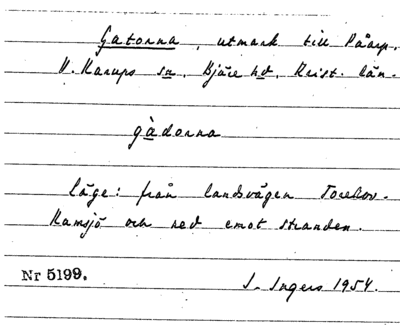 Gatorna, utmark till Påarp.
V. Karups sn, Bjäre hd, Krist. län.
gàdorna
Läge: från landsvägen Torekov-
Ramsjö och ned emot stranden.
Nr 5199.
I. Ingers 1954.